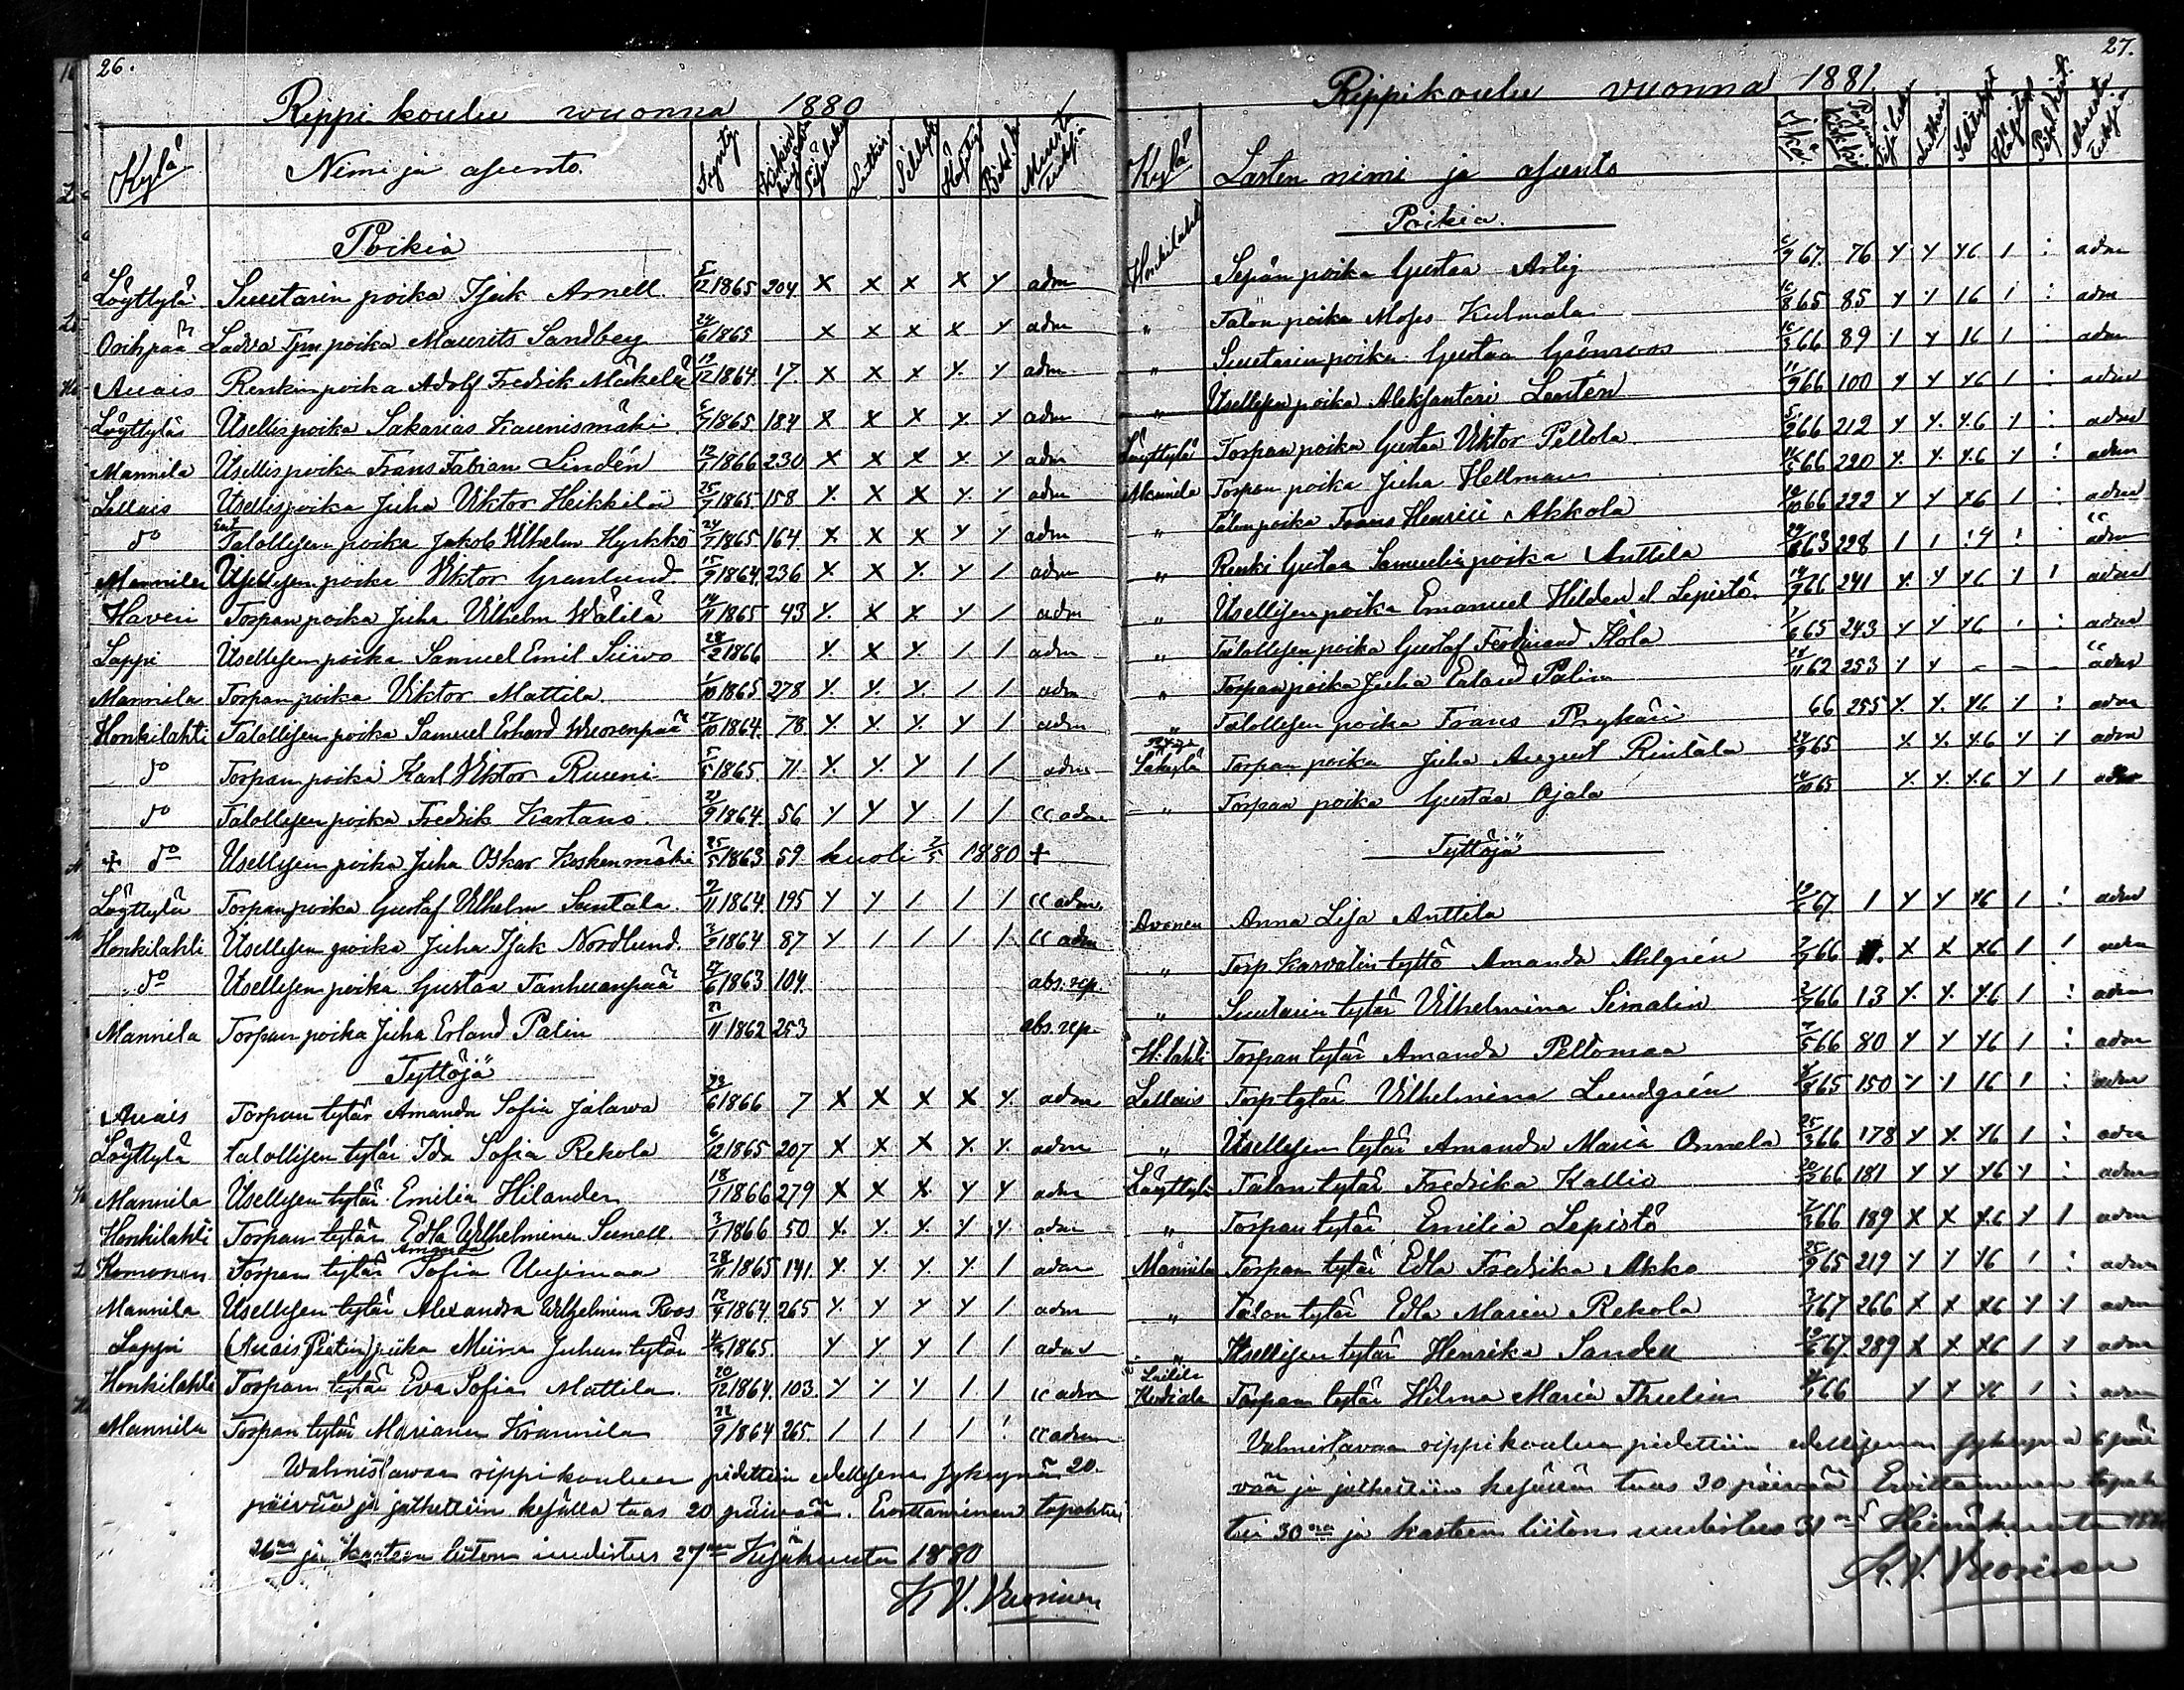 26.
Rippikoulu wuonna 1880
Kylä Nimi ja asunto.
Poikia
Löyttylä Suutarin poika Isak Arnell. 5/12 1865 204 x x x x y adm
Ladva poika Maurits Sandberg 24/6 1865 x x x x y adm
Auais Renkin poika Adolf Fredrik Mäkelä 19/12 1864 17. x x x y. y adm
Löyttylä Itsellis poika Sakarias Kaunismäki 6/7 1865 184 x x x y. y adm
Mannila Itsellis poika Frans Fabian Lindén 12/1 1866 230 x x x y. y adm
Lellais Itsellis poika Juha Viktor Heikkilä 25/9 1865 158 y. x x y. y adm
do Talollisen poika Jakob Vilhelm Hyrkkö 24/7 1865 164 x x x y y adm
Mannila Itsellisen poika Viktor Granlund. 15/9 1864. 236 y. x y. y / adm
Haveri Torpan poika Juha Vilhelm Wälilä 14/11 1865 43 y. x x y / adm
Lappi Itsellisen poika Samuel Emil Siivo 28/2 1866 y. x y. / / adm
Mannila Torpan poika Viktor Mattila 1/10 1865 278 y. y. y. / / adm
Honkilahti Talollisen poika Samuel Erhard Wuorenpää 27/10 1864. 78 y. y. y. y / adm
do Torpan poika Karl Viktor Ruuni 5/5 1865. 71 y. y. y / / adm
do Talollisen poika Fredrik Kartano. 21/9 1864. 56 y y y / / cc adm
+ do Itsellisen poika Juha Oskar Koskenmäki 25/5 1863 59 kuoli 2/5 1880 +
Löyttylä Torpan poika Gustaf Vilhelm Santala. 9/11 1864. 195 y y / / / cc adm.
Honkilahti Itsellisen poika Juha Isak Nordlund. 3/2 1864 87 y / / / / cc adm
do Itsellisen poika Gustaa Tanhuanpää 27/6 1863 104. abs. rep.
Mannila Torpan poika Juha Erland Palin 21/11 1862 253 abs. rep.
Tyttöjä
Auais Torpan tytär Amanda Sofia Jalawa 23/6 1866 7 x x x x y. adm
Löyttylä talollisen tytär Ida Sofia Rekola 6/12 1865 207 x x x y. y. adm
Mannila Itsellisen tytär Emilia Hilander 18/1 1866 279 x x x y y adm
Honkilahti Torpan tytär Edla Wilhelmina Sunell. 3/1 1866 50 x. y. y. y y. adm
Amanda
Komonen Torpan tytär Sofia Uusimaa 28/11 1865 141. y. y. y. y. / adm
Mannila Itsellisen tytär Alexandra Wilhelmina Roos 12/4 1864. 265 y. y y y / adm
Lappi piika Miina Juhan tytär 1865. y y y / / adm
Honkilahti Torpan tytär Eva Sofia Mattila. 20/12 1864. 103. y y y / / cc adm
Mannila Torpan tytär Mariana Krannila 22/9 1864 265. / / / / ! cc adm
Walmistawaa rippikoulua pidettiin edellisenä syksynä 20.
päivää ja jatkettiin kesällä taas 20 päivää. Eroittaminen tapahtui
26na ja kasteen liiton uudistus 27nä Kesäkuuta 1880
K. V. Vuorinen
27.
Rippikoulu vuonna 1881.
Kylä Lasten nimi ja asunto Ikä
Poikia.
Honkilahti Sepän poika Gustaa Artig 6/9 67. 76 y y y6 / : adm
" Talon poika Moses Kulmala 16/8 65 85 y y 16 / : adm
" Suutarin poika Gustaa Grönroos 16/3 66 89 / y 16 / adm
" Itsellisen poika Aleksanteri Lentén 11/9 66 100 y y y6 / : adm
Löyttylä Torpan poika Gustaa Viktor Peltola 5/2 66 212 y y. y.6 y : adm
Mannila Torpan poika Juha Hellman 66 220 y. y. y.6 y ! adm
" Talon poika Frans Henrik Akkola 10/10 66 222 y y y6 / : adm
" Renki Gustaa Samuelin poika Anttila 63 228 / / !4 ! cc adm
" Itsellisen poika Emanuel Hildén l. Lepistö 14/9 66 241 y. y y6 y ! adm
" Talollisen poika Gustaf Ferdinand Hola 7/6 65 243 y y y6 ' : adm
" Torpan poika Juha Erland Palin 21/11 62 253 y y - - - cc adm
" Talollisen poika Frans Prykäri 66 255 y. y. y6 y : adm
Säkylä Torpan poika Juha August Rintala 24/9 65 y y. y.6 y y adm
" Torpan poika Gustaa Ojala 14/10 65 y. y. y.6 y / adm
Tyttöjä
Avonen Anna Lisa Anttila 67. 1 y y y6 / ! adm
" Torp. Karvatin tyttö Amanda Ahlgrén 66 x x x6 / ! adm
" Suutarin tytär Vilhelmina Simalin 2/7 66 13 y. y. y.6 / : adm
H:lahti Torpan tytär Amanda Peltomaa 7/5 66 80 y y y6 / : adm
Lellais Torp. tytär Vilhelmina Lundgrén 8/8 65 150 y y 16 / : adm
" Itsellisen tytär Amanda Maria Onnela 25/3 66 178 y y. y6 / : adm
Löyttylä Talon tytär Fredrika Kallio 20/3 66 181 y y y6 y : adm
" Torpan tytär Emilia Lepistö 7/3 66 189 x x y.6 y / adm
Mannila Torpan tytär Edla Fredrika Akko 25/9 65 219 y y y6 / : adm
" Talon tytär Edla Maria Rekola 3/1 67 266 x x x6 y y adm
" Itsellisen tytär Henrika Sandell 67 289 x x x6 / y adm
Laitila
Kodiala Torpan tytär Hilma Maria Thulin 66 y y y6 / : adm
Valmistavaa rippikoulua pidettiin edellisenä syksynä 6 päi
vää ja jatkettiin kesällä taas 30 päivää Eroittaminen tapah
tui 30nä ja kasteen liiton uudistus 31nä Heinäkuuta
K. V. Vuorinen